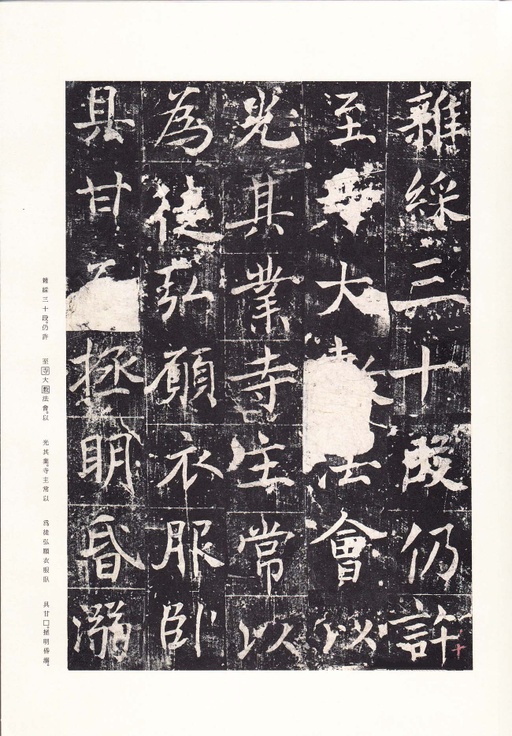 雜綵三十段仍許
至大法會以
光其業寺主常以
為徒弘願衣服臥
具甘拯明昏溺
雜綵三十段。仍許　至大法會。以　光其業。寺主常以　爲徒弘願衣服臥　具甘□。拯明昏溺。